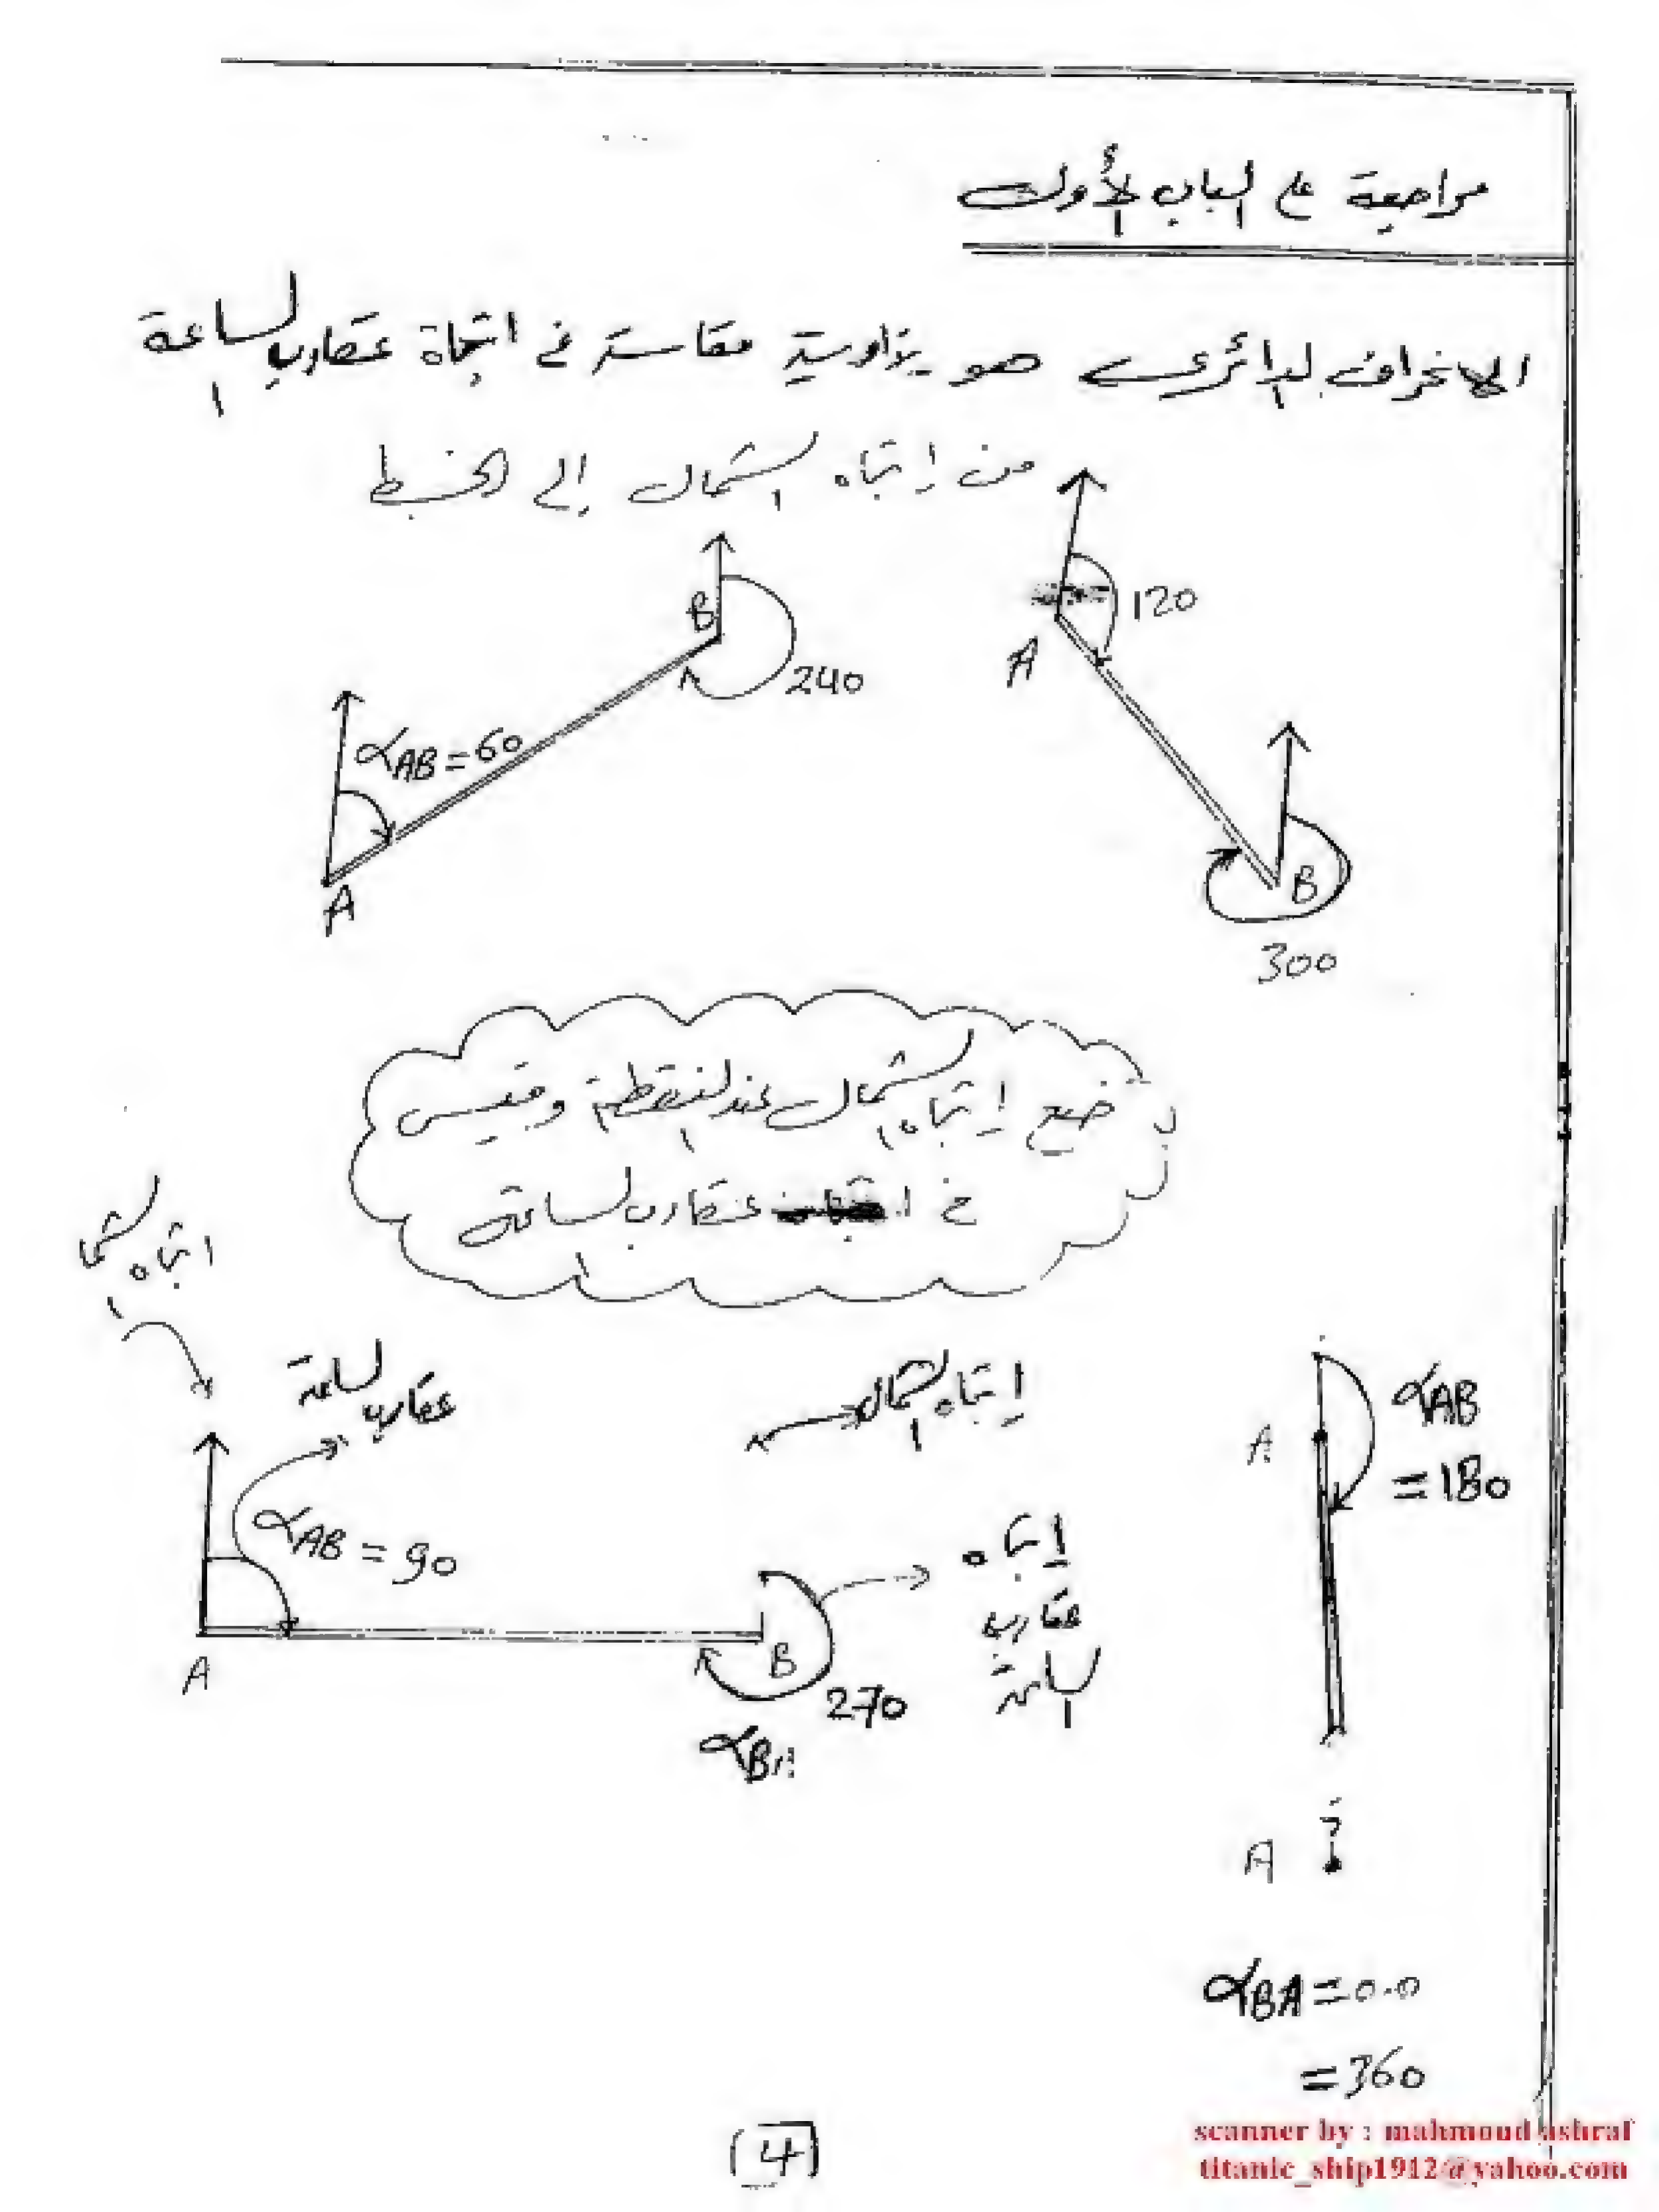 مراجعة على الباب الأول
الانحراف الدائرى هو زاوية مقاسة فى اتجاة عقارب الساعة
من إتجاه الشمال إلى الخط
B
240
αAB = 60
A
120
A
B
300
نضع إتجاه الشمال عند النقطة ونقيس
فى اتجاه عقارب الساعة
اتجاه الشما
عقارب الساعة
إتجاه الشمال
αAB = 90
A
B
270
αBA
إتجاه
عقارب
الساعة
A
αAB
= 180
A
αBA = 0.0
= 360
(4)
scanner by : mahmoud ashraf
titanic_ship1912@yahoo.com